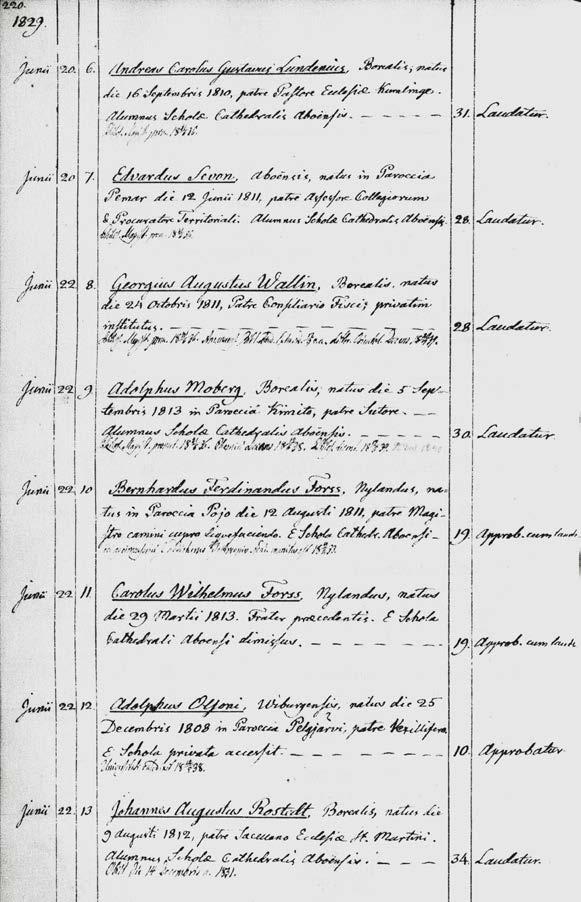 220.
1829.
Junii 20. 6. Andreas Carolus Gustavus Lundenius, Borealis, natus
die 16 Septembris 1810, patre Pastore Ecclesiæ Kumlinge.
Alumnus Scholæ Cathedralis Aboënsis. — 31. Laudatur.
Junii 20 7. Edvardus Sevon, Aboënsis, natus in Paroccia
Pemar die 12 Junii 1811, patre Assessore Collegiorum
& Procuratore Territoriali. Alumnus Scholæ Cathedralis Aboënsis. 28. Laudatur.
Junii 22 8. Georgius Augustus Wallin, Borealis, natus
die 24 Octobris 1811, Patre Consiliario Fisci; privatim
institutus. — 28 Laudatur.
Junii 22 9. Adolphus Moberg, Borealis, natus die 5 Sep-
tembris 1813 in Paroccia Kimito, patre Sutore. —
Alumnus Scholæ Cathedralis Aboënsis. — 30. Laudatur
Junii 22 10 Bernhardus Ferdinandus Forss, Nylandus, na-
tus in Paroccia Pojo die 12 Augusti 1811, patre Magi-
stro camini cupro liquefaciendo. E Schola Cathedr. Aboënsi — 19 Approb. cum laude
Junii 22 11 Carolus Wilhelmus Forss, Nylandus, natus
die 29 Martii 1813. Frater præcedentis. E Schola
Cathedrali Aboensi dimissus. — 19. Approb. cum laude
Junii 22 12. Adolphus Olsoni, Wiburgensis, natus die 25
Decembris 1808 in Paroccia Pelgjärvi, patre Vexillifero.
E Schola privata accessit. — 10. Approbatur
Junii 22 13 Johannes Augustus Rostedt, Borealis, natus die
9 augusti 1812, patre Sacellano Ecclesiæ St. Martini.
Alumnus Scholæ Cathedralis Aboënsis. — 34. Laudatur.
Obiit die 14 Decembris a. 1831.